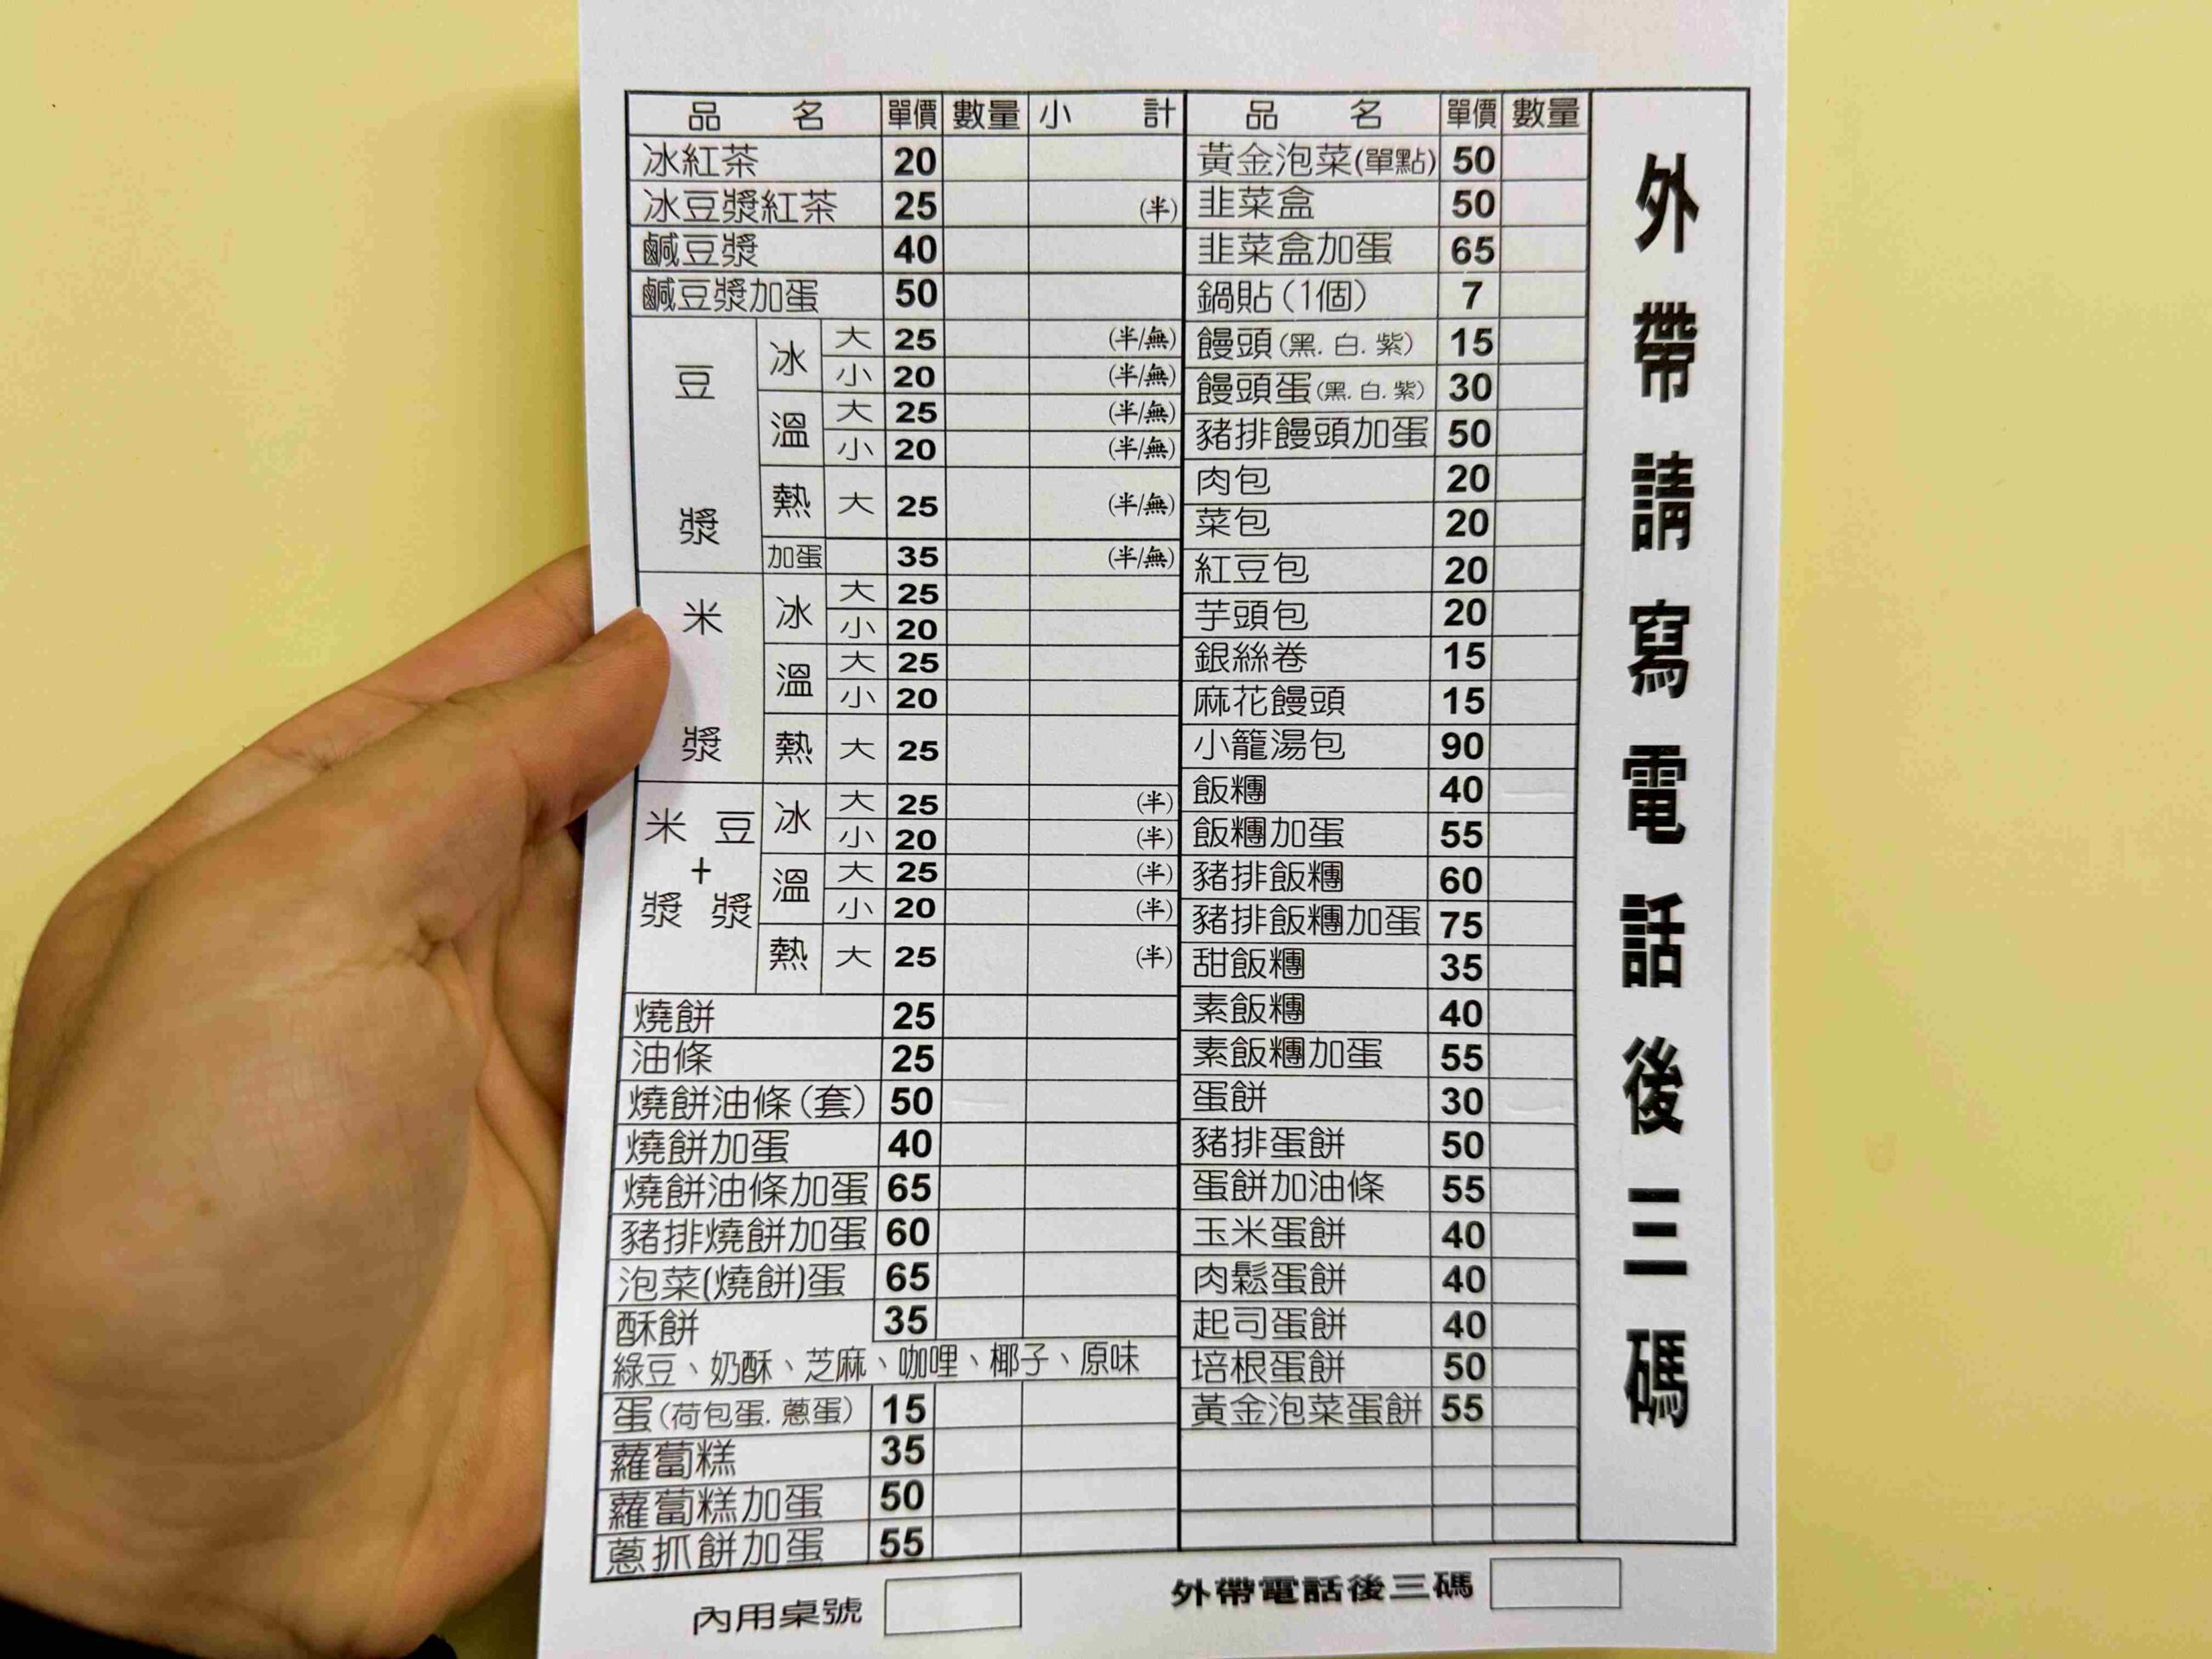 品名 單價 數量 小計
冰紅茶 20
冰豆漿紅茶 25 (半)
鹹豆漿 40
鹹豆漿加蛋 50
豆漿 冰 大 25 (半/無)
小 20 (半/無)
溫 大 25 (半/無)
小 20 (半/無)
熱 大 25 (半/無)
加蛋 35 (半/無)
米漿 冰 大 25
小 20
溫 大 25
小 20
熱 大 25
米漿+豆漿 冰 大 25 (半)
小 20 (半)
溫 大 25 (半)
小 20 (半)
熱 大 25 (半)
燒餅 25
油條 25
燒餅油條(套) 50
燒餅加蛋 40
燒餅油條加蛋 65
豬排燒餅加蛋 60
泡菜(燒餅)蛋 65
酥餅 35
綠豆、奶酥、芝麻、咖哩、椰子、原味
蛋(荷包蛋.蔥蛋) 15
蘿蔔糕 35
蘿蔔糕加蛋 50
蔥抓餅加蛋 55
品名 單價 數量
黃金泡菜(單點) 50
韭菜盒 50
韭菜盒加蛋 65
鍋貼(1個) 7
饅頭(黑.白.紫) 15
饅頭蛋(黑.白.紫) 30
豬排饅頭加蛋 50
肉包 20
菜包 20
紅豆包 20
芋頭包 20
銀絲卷 15
麻花饅頭 15
小籠湯包 90
飯糰 40
飯糰加蛋 55
豬排飯糰 60
豬排飯糰加蛋 75
甜飯糰 35
素飯糰 40
素飯糰加蛋 55
蛋餅 30
豬排蛋餅 50
蛋餅加油條 55
玉米蛋餅 40
肉鬆蛋餅 40
起司蛋餅 40
培根蛋餅 50
黃金泡菜蛋餅 55
外帶請寫電話後三碼
內用桌號
外帶電話後三碼